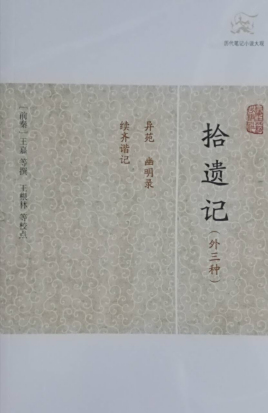 历代笔记小说大观
拾遗记
（外三种）
异苑 幽明录
续齐谐记
［前秦］王嘉 等撰 王根林 等校点